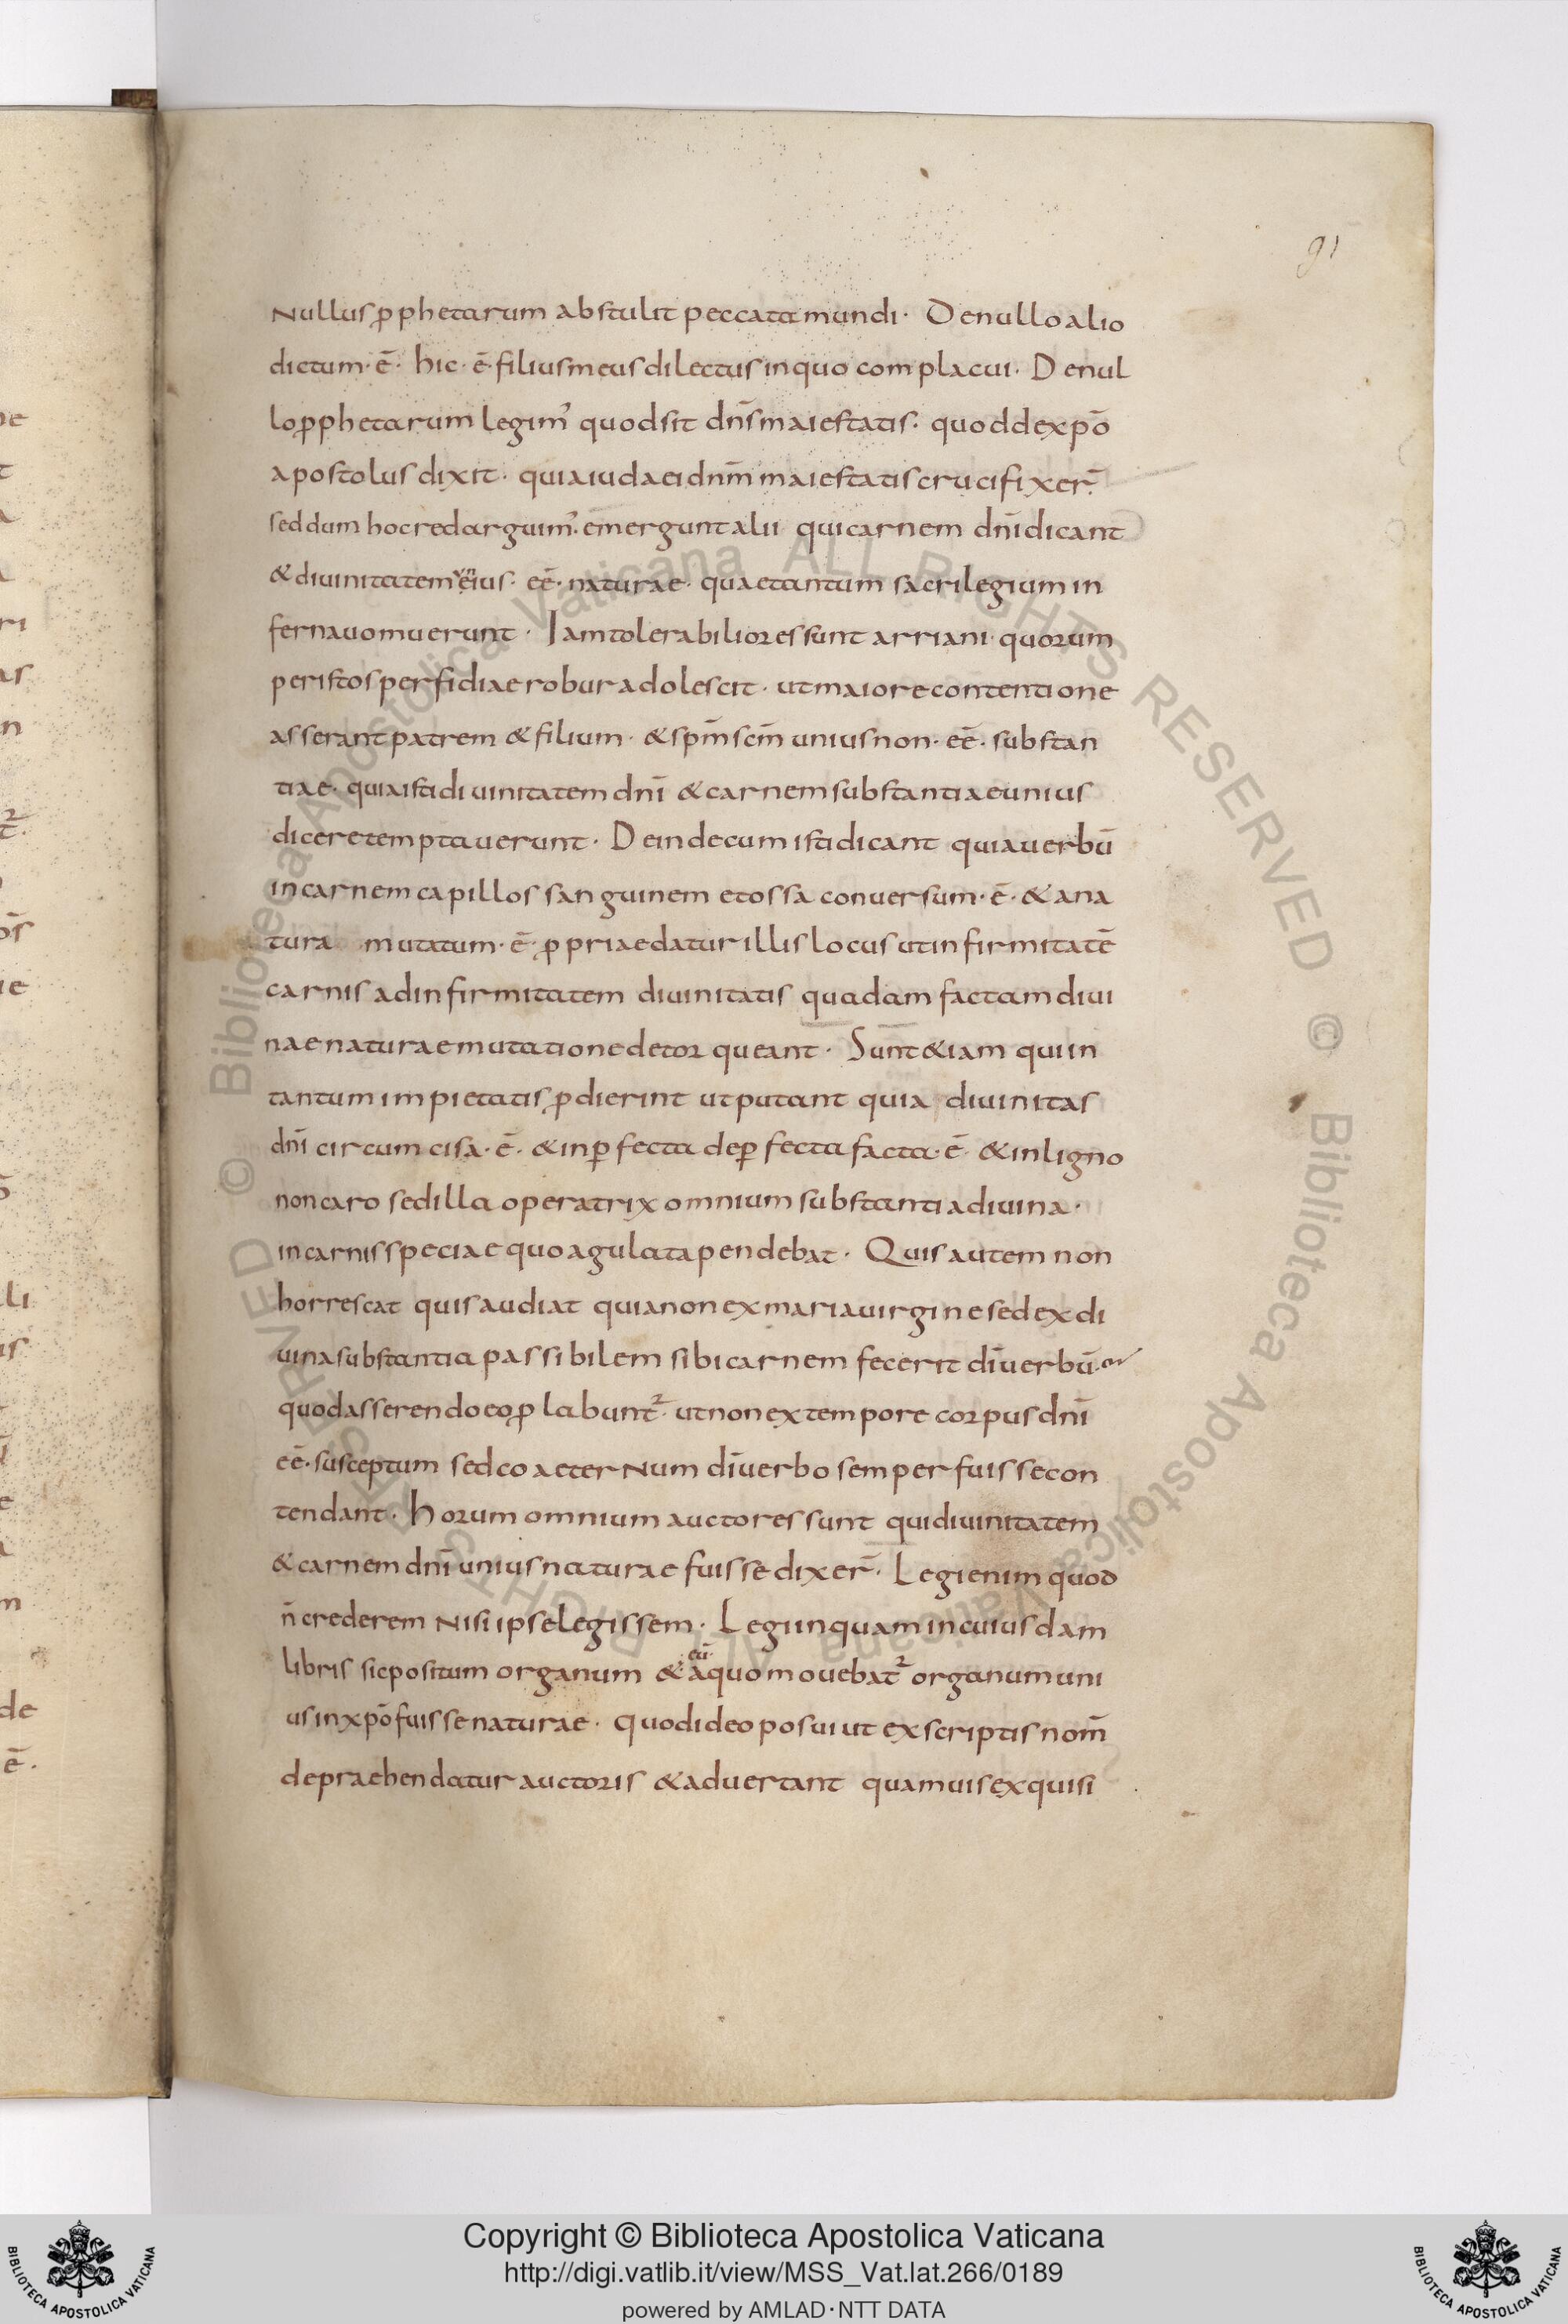 91
Nullus ꝓphetarum abstulit peccata mundi· De nullo alio
dictum· ē· hic· ē· filius meus dilectus in quo complacui· De nul
lo ꝓphetarum legim᾽ quod sit dn̄s maiestatis· quod de xp̄o
apostolus dixit· quia iudaei dn̄m maiestatis crucifixer̄
sed dum hoc redarguim᾽· emergunt alii qui carnem dn̄i dicant
& diuinitatem eius· eē· naturae· quae tantum sacrilegium in
ferna uomuerunt· Iam tolerabiliores sunt arriani· quorum
per istos perfidiae robur adolescit· ut maiore contentione
asserant patrem & filium· & sp̄m sc̄m unius non· eē· substan
tiae· quia isti diuinitatem dn̄i & carnem substantiae unius
dicere temptauerunt· Deinde cum isti dicant quia uerbū
in carnem capillos sanguinem et ossa conuersum· ē· & a na
tura mutatum· ē· ꝓpriae datur illis locus ut infirmitatē
carnis ad infirmitatem diuinitatis quadam factam diui
nae naturae mutatione detorqueant· Sunt &iam qui in
tantum impietatis ꝓdierint ut putant quia diuinitas
dn̄i circumcisa· ē· & inꝑfecta de ꝑfecta facta· ē· & in ligno
non caro sed illa operatrix omnium substantia diuina·
in carnis speciae quoagulata pendebat· Quis autem non
horrescat quis audiat quia non ex maria uirgine sed ex di
uina substantia passibilem sibi carnem fecerit dī uerbū·
quod asserendo eo ꝓlabunt²· ut non ex tempore corpus dn̄i
eē· susceptum sed coaeterNum dī uerbo semper fuisse con
tendant· Horum omnium auctores sunt qui diuinitatem
& carnem dn̄i unius naturae fuisse dixer̄· Legi enim quod
n̄ crederem Nisi ipse legissem· Legi inquam in cuiusdam
libris sic positum organum & eū· a quo mouebat² organum uni
us in xp̄o fuisse naturae· quod ideo posui ut ex scriptis nom̄
depraehendatur auctoris & aduertant quamuis exquisi
Copyright © Biblioteca Apostolica Vaticana
http://digi.vatlib.it/view/MSS_Vat.lat.266/0189
powered by AMLAD·NTT DATA
BIBLIOTECA APOSTOLICA VATICANA
BIBLIOTECA APOSTOLICA VATICANA
© Biblioteca Apostolica Vaticana ALL RIGHTS RESERVED © Biblioteca Apostolica Vaticana ALL RIGHTS RESERVED